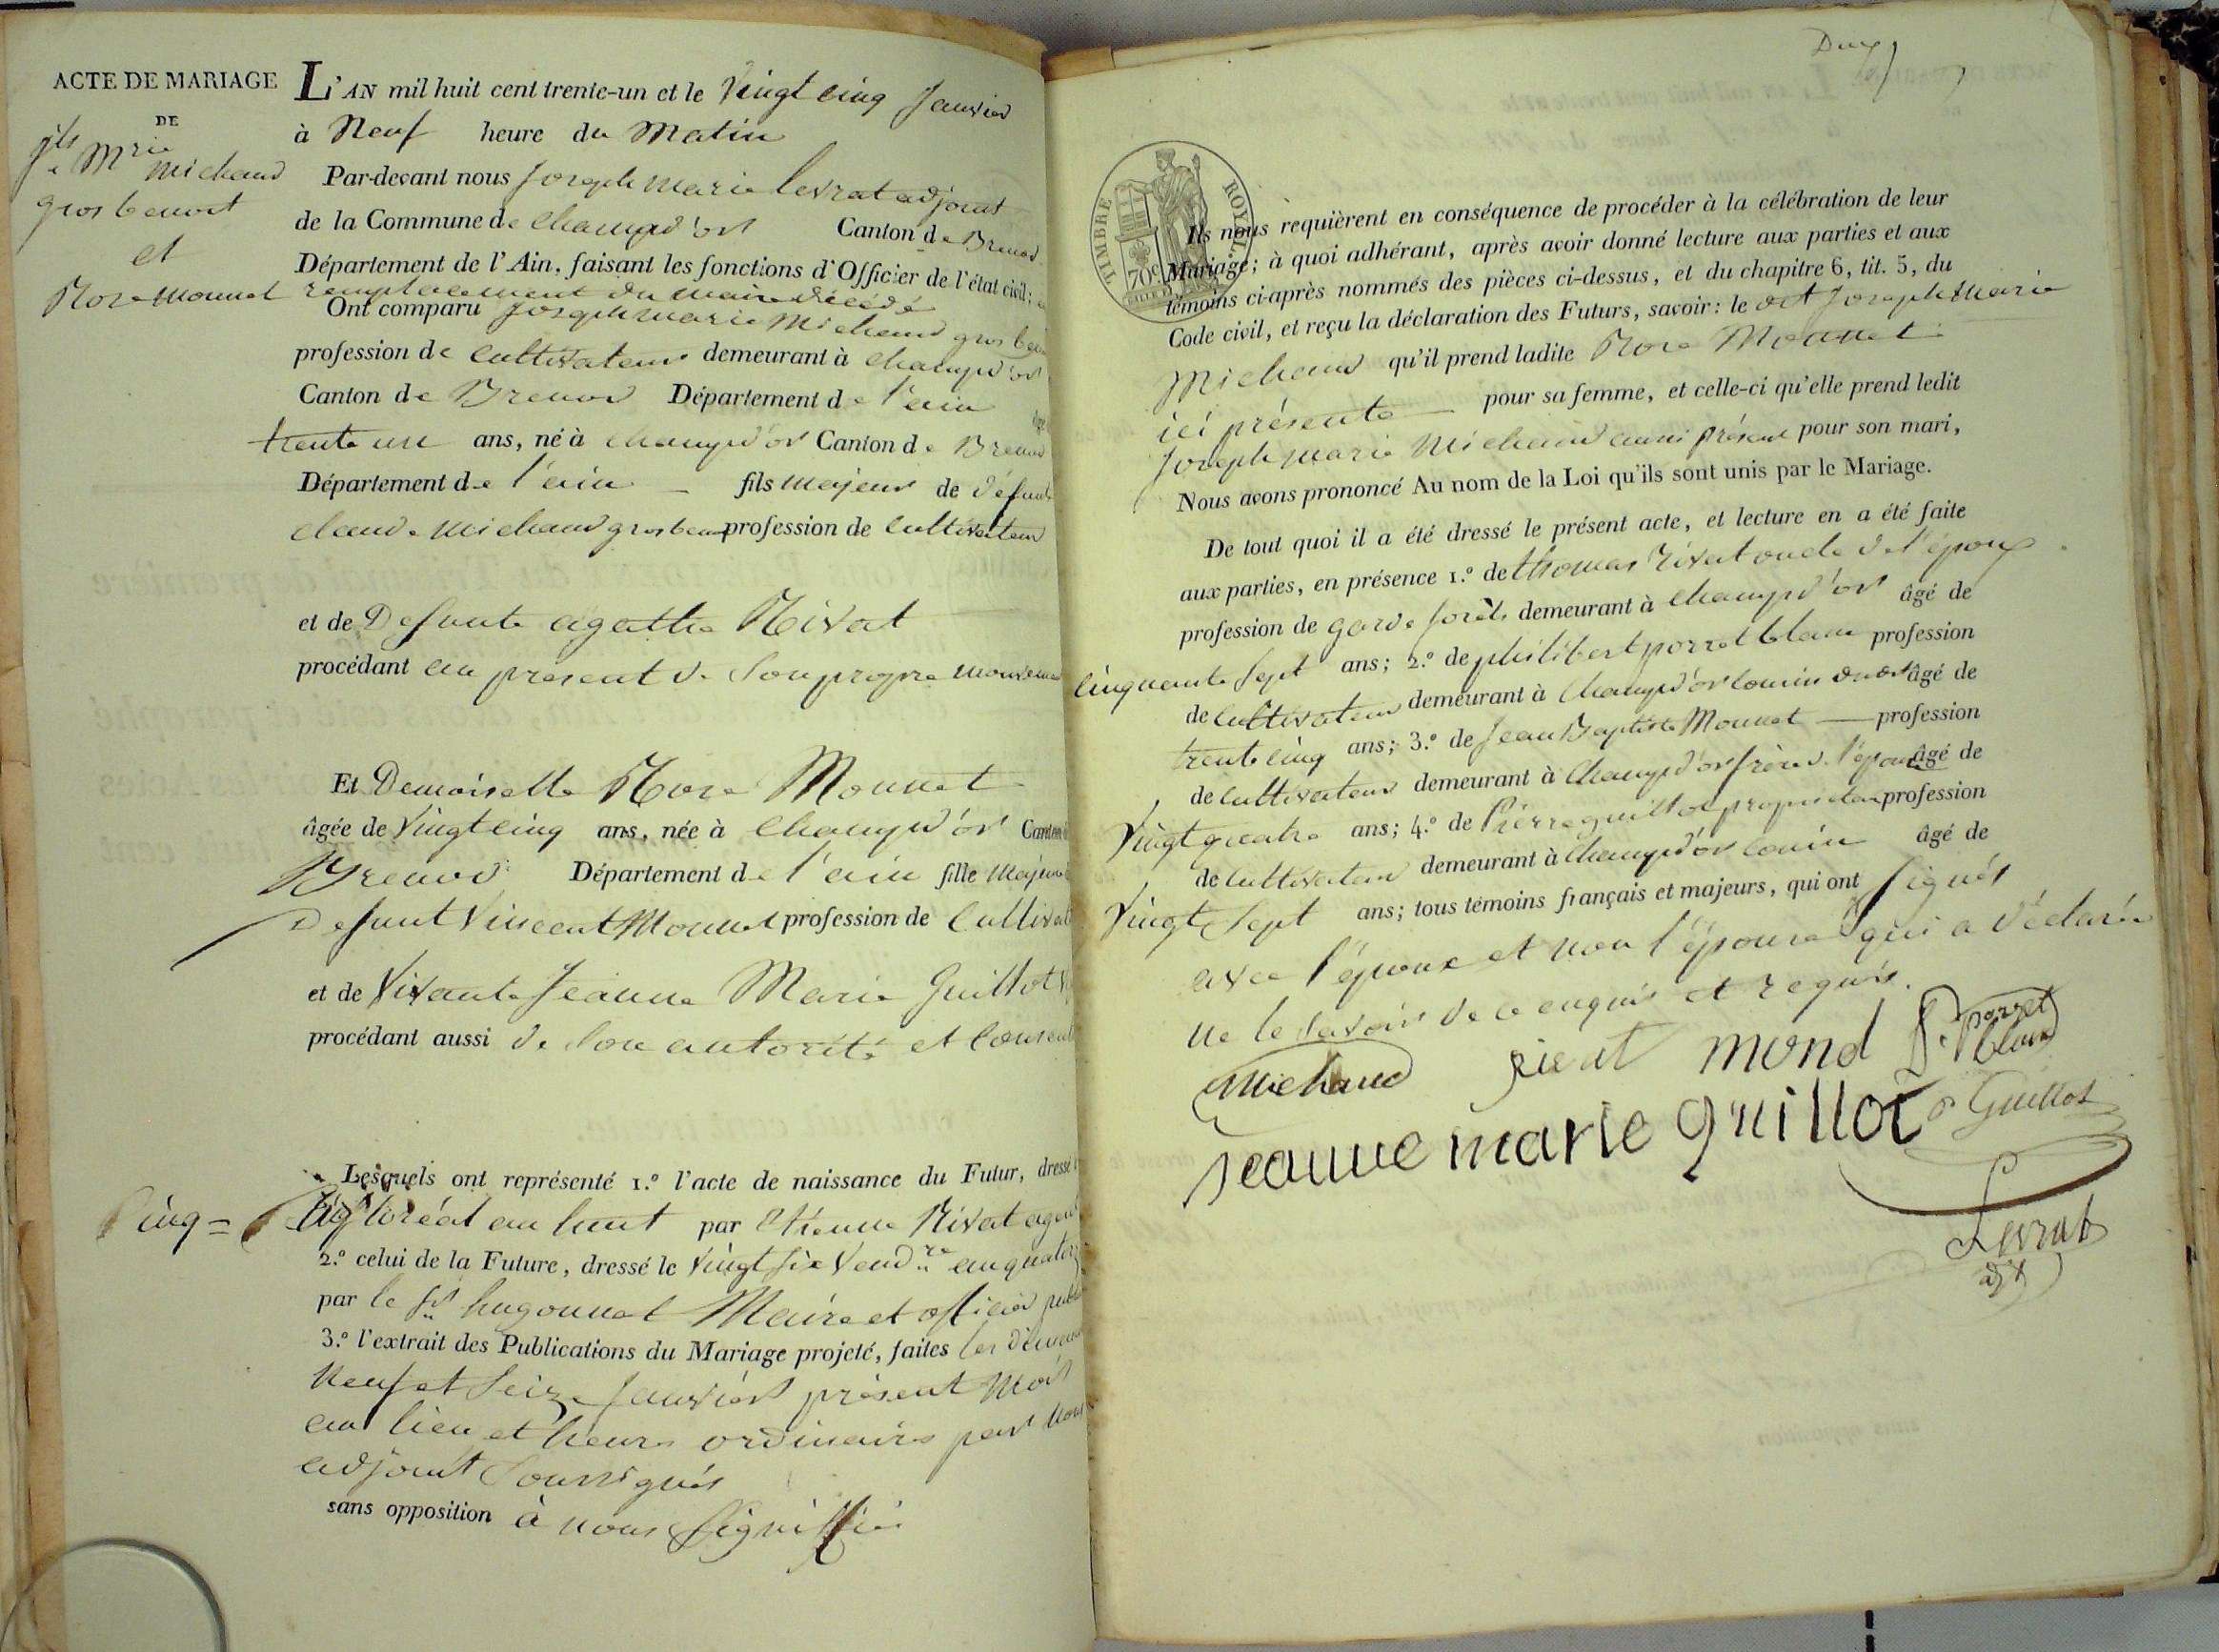 ACTE DE MARIAGE
DE
jh Mrie Michaud
gros benoit
et
Rose Monnet
L'AN mil huit cent trente-un et le Vingt cinq Janvier
à Neuf heure du Matin
Par-devant nous Joseph Marie Levrat adjoint
de la Commune de Champd'or Canton de Brenod
Département de l'Ain, faisant les fonctions d'Officier de l'état civil; en
remplacement du maire décédé
Ont comparu Joseph marie Michaud gros ben
profession de cultivateur demeurant à champd'or
Canton de Brenod Département de l'ain
trente un ans, né à champd'or Canton de Brenod
Département de l'ain fils majeur de défunt
claude Michaud gros ben profession de Cultivateur
et de Defunte agathe Rivat
procédant au present de Son propre mouvement
Et Demoiselle Rose Monnet
âgée de Vingt cinq ans, née à Champd'or Canton
Brenod Département de l'ain fille majeure
Defunt Vincent Monnet profession de Cultivat
et de Vivante Jeanne Marie Guillot
procédant aussi de Son autorité et Consent
Lesquels ont représenté 1.º l'acte de naissance du Futur, dressé
Cinq = floréal an huit par Etienne Rivat agent
2.º celui de la Future, dressé le Vingt Six Vend.re an quatorz
par le Sr hugonnet Maire et officier publi
3.º l'extrait des Publications du Mariage projeté, faites les diman
Neuf et Seize Janvier présent Mois
au lieu et heure ordinaire par Nous
adjoint Soussigné
sans opposition à nous Signifiée
Deux
TIMBRE ROYAL
70c
Ils nous requièrent en conséquence de procéder à la célébration de leur
Mariage; à quoi adhérant, après avoir donné lecture aux parties et aux
témoins ci-après nommés des pièces ci-dessus, et du chapitre 6, tit. 5, du
Code civil, et reçu la déclaration des Futurs, savoir: le dit Joseph Marie
Michaud qu'il prend ladite Rose Monnet
ici présente pour sa femme, et celle-ci qu'elle prend ledit
Joseph marie Michaud aussi présent pour son mari,
Nous avons prononcé Au nom de la Loi qu'ils sont unis par le Mariage.
De tout quoi il a été dressé le présent acte, et lecture en a été faite
aux parties, en présence 1.º de thomas Rivat oncle de l'époux
profession de garde forêts demeurant à Champd'or âgé de
Cinquante Sept ans; 2.º de philibert porret blanc profession
de Cultivateur demeurant à Champd'or cousin âgé de
trente cinq ans; 3.º de Jean Baptiste Monnet profession
de Cultivateur demeurant à Champd'or frère de l'épouse âgé de
Vingt quatre ans; 4.º de Pierre guillot profession
de Cultivateur demeurant à Champd'or cousin âgé de
Vingt Sept ans; tous témoins français et majeurs, qui ont Signés
avec l'époux et non l'épouse qui a déclarée
ne le Savoir de ce enquis et requis.
Michaud rivat mond P. Porret blanc
Jeanne marie guillot P Guillot
Levrat
adjt